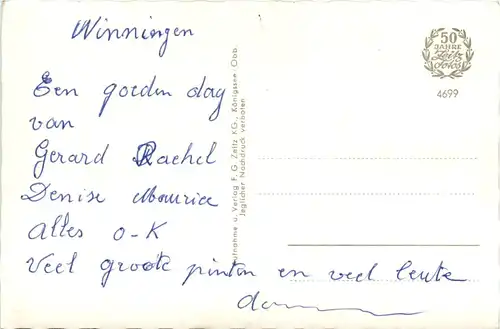 Winningen
Een goeden dag
van
Gerard Rachel
Denise Maurice
Alles O-K
Veel groote pinten en veel leute
50
JAHRE
Zeitz
Fotos
4699
Aufnahme u. Verlag F. G. Zeitz KG., Königssee Obb.
Jeglicher Nachdruck verboten